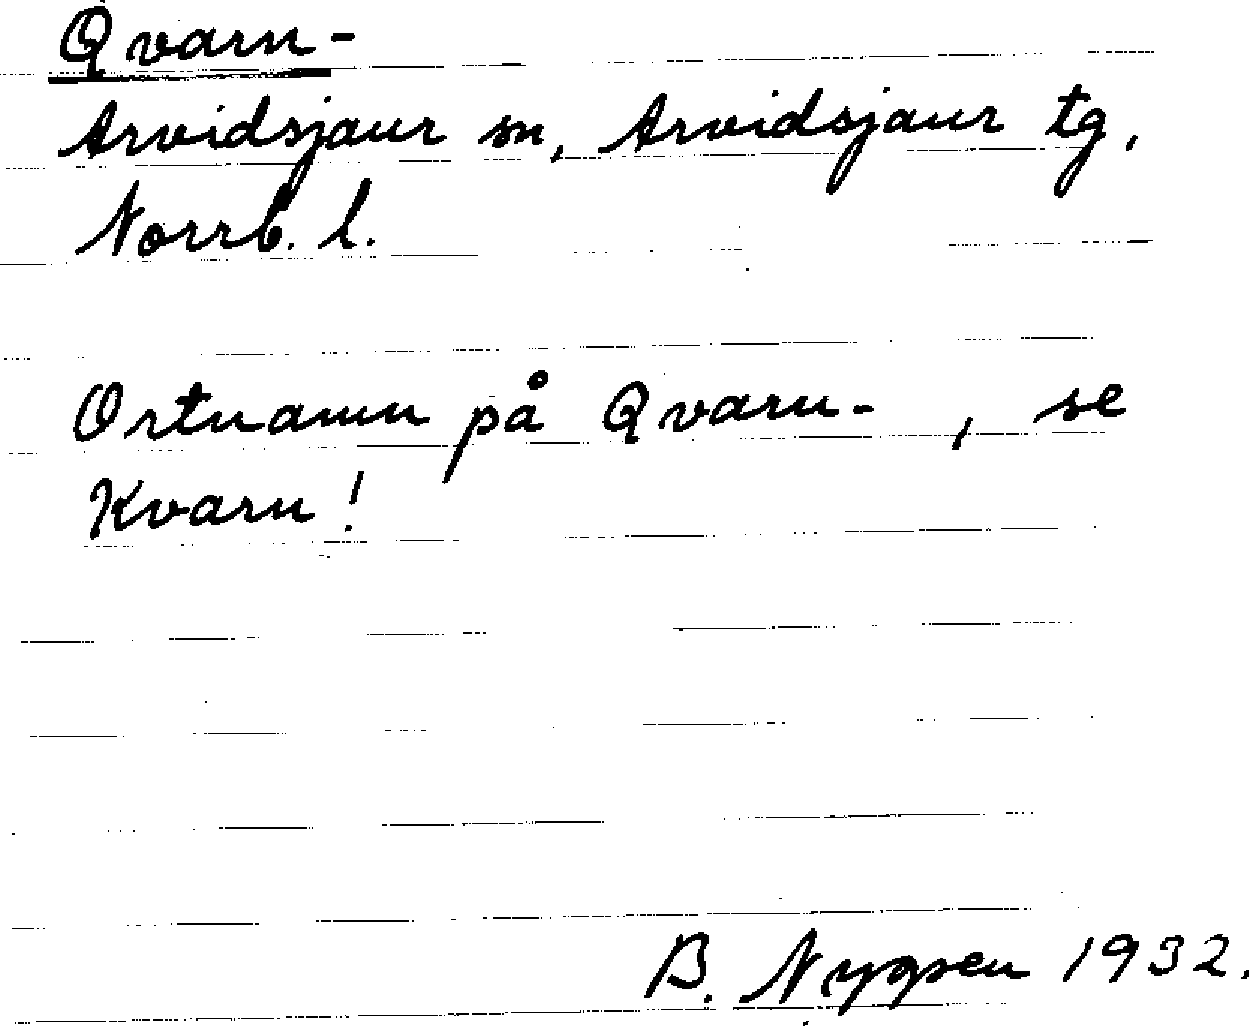 Qvarn-
Arvidsjaur sn, Arvidsjaur tg,
Norrb. l.
Ortnamn på Qvarn- , se
Kvarn!
B. 1932.